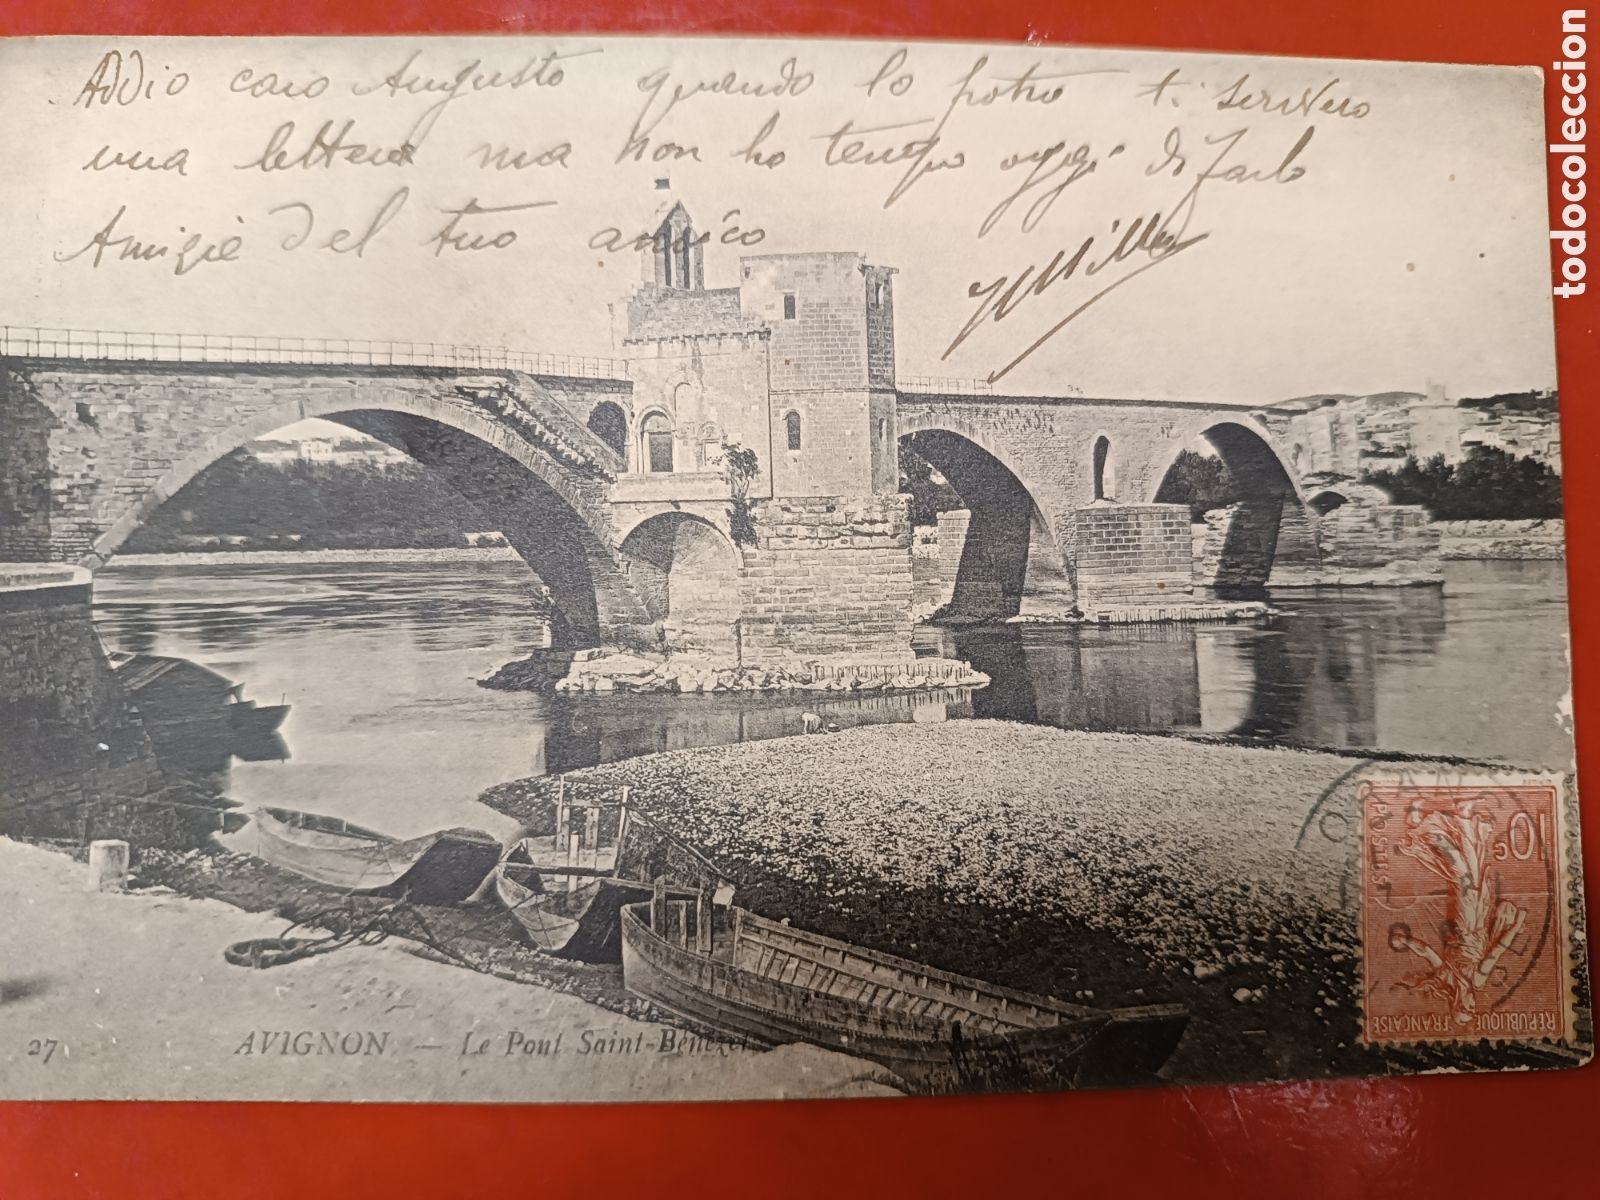 Addio caro Augusto quando lo potro ti scrivero
una lettera ma non ho tempo oggi di farlo
Amigie del tuo amico
27 AVIGNON. — Le Pont Saint-Bénézet
10c
POSTES
REPUBLIQUE FRANÇAISE
todocoleccion